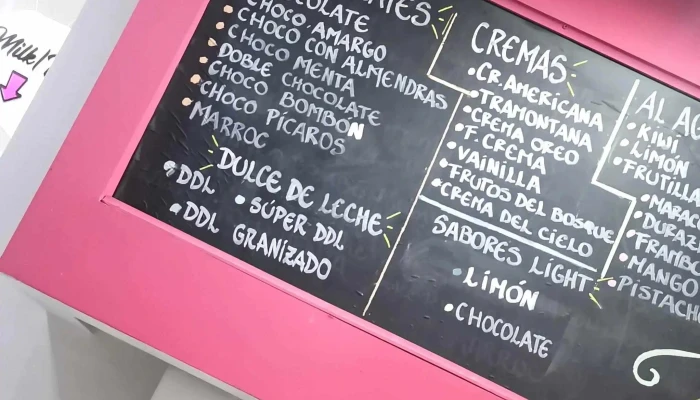 Milk
CHOCOLATE
CHOCO AMARGO
CHOCO CON ALMENDRAS
CHOCO MENTA
DOBLE CHOCOLATE
CHOCO BOMBÓN
CHOCO PÍCAROS
MARROC
DULCE DE LECHE
• DDL
• SÚPER DDL
• DDL GRANIZADO
CREMAS
• CR. AMERICANA
• TRAMONTANA
• CREMA OREO
• F. CREMA
• VAINILLA
• FRUTOS DEL BOSQUE
• CREMA DEL CIELO
SABORES LIGHT
• LIMÓN
• CHOCOLATE
AL
• KIWI
• LIMÓN
• FRUTILLA
• MARAC
• DURAZ
• FRAMB
• MANGO
• PISTACH